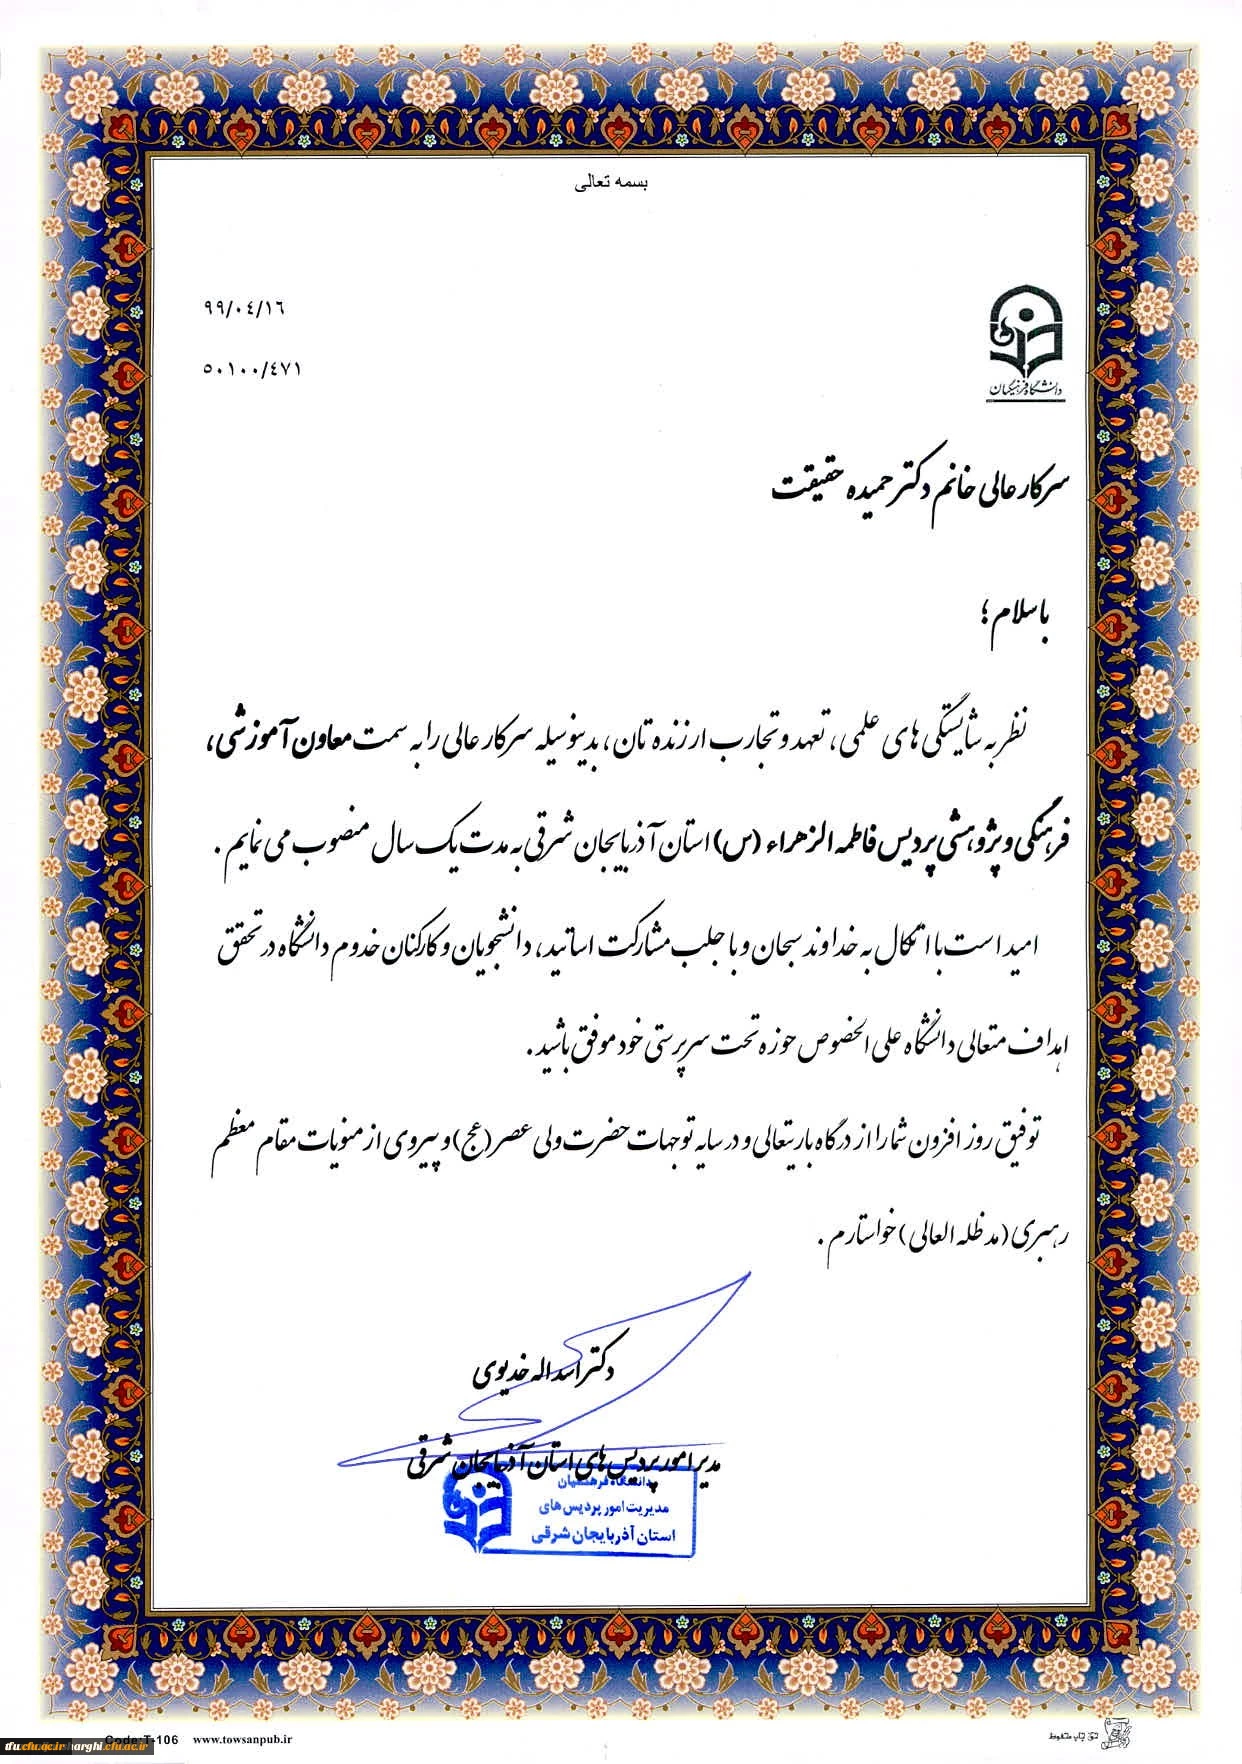 بسمه تعالی
۹۹/۰٤/۱٦
۵۰۱۰۰/٤۷۱
دانشگاه فرهنگیان
سرکار عالی خانم دکتر حمیده حقیقت
با سلام ؛
نظر به شایستگی های علمی ، تعهد و تجارب ارزنده تان ، بدینوسیله سرکار عالی را به سمت معاون آموزشی ،
فرهنگی و پژوهشی پردیس فاطمه الزهراء (س) استان آذربایجان شرقی به مدت یک سال منصوب می نمایم .
امید است با اتکال به خداوند سبحان و با جلب مشارکت اساتید ، دانشجویان و کارکنان خدوم دانشگاه در تحقق
اهداف متعالی دانشگاه علی الخصوص حوزه تحت سرپرستی خود موفق باشید .
توفیق روز افزون شما را از درگاه باریتعالی و در سایه توجهات حضرت ولی عصر (عج) و پیروی از منویات مقام معظم
رهبری (مدظله العالی) خواستارم .
دکتر اسداله خدیوی
مدیر امور پردیس های استان آذربایجان شرقی
دانشگاه فرهنگیان
مدیریت امور پردیس های
استان آذربایجان شرقی
Code:T-106 www.towsanpub.ir